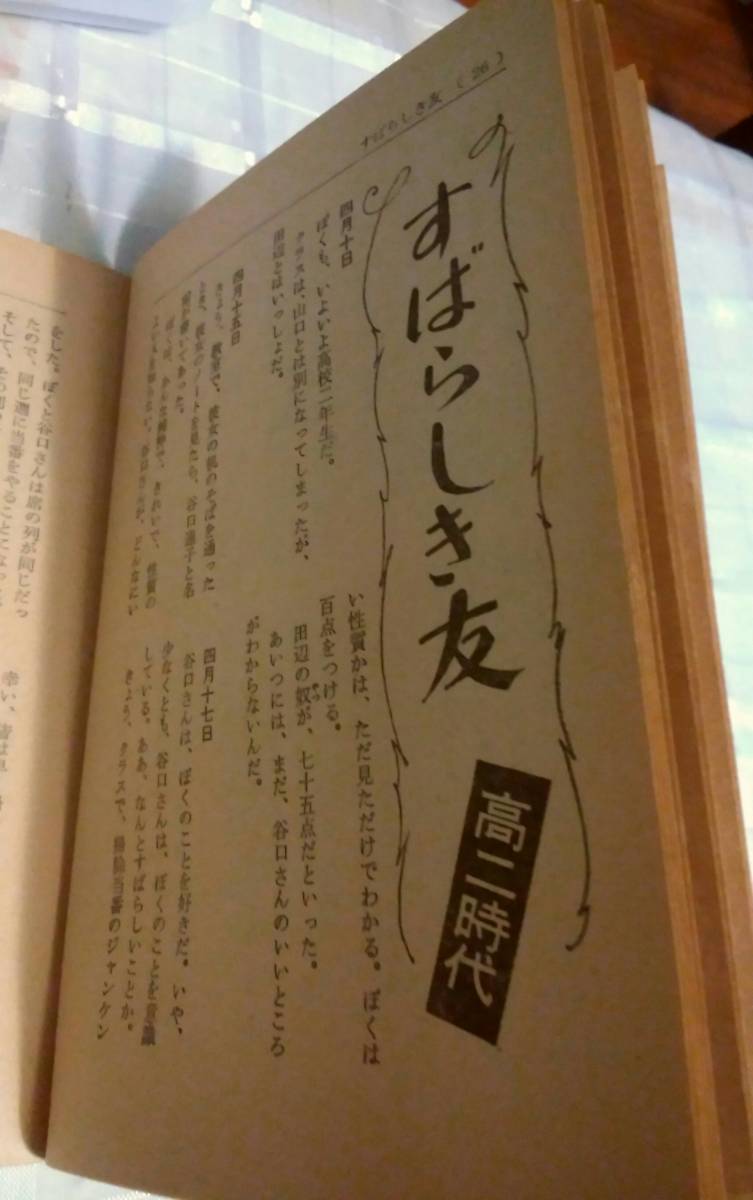 すばらしき友 (26)
すばらしき友
高二時代
四月十日
ぼくも、いよいよ高校二年生だ。
クラスは、山口とは別になってしまったが、
田辺とはいっしょだ。
四月十五日
きょう、教室で、彼女の机のそばを通った
とき、彼女のノートを見たら、谷口
と名
前が書いてあった。
ぼくは、
きれいで、性質の
谷口さんが、どんなにい
い性質かは、ただ見ただけでわかる。ぼくは
百点をつける。
田辺の奴が、七十五点だといった。
やつ
あいつには、まだ、谷口さんのいいところ
がわからないんだ。
四月十七日
谷口さんは、ぼくのことを好きだ。いや、
少なくとも、谷口さんは、ぼくのことを意識
している。ああ、なんとすばらしいことか。
きょう、クラスで、掃除当番のジャンケン
をした。ぼくと谷口さんは席の列が同じだっ
たので、同じ週に当番をやることになった
そして、その
幸い、